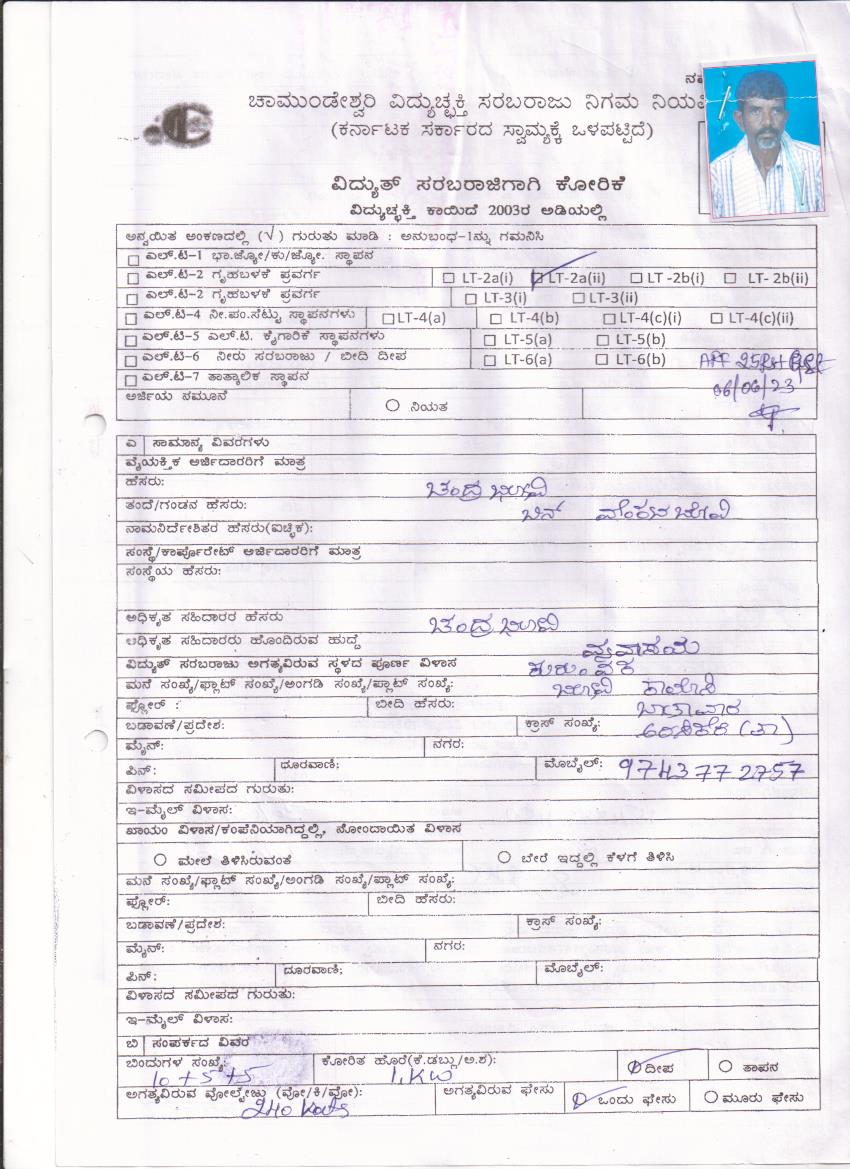 ಚಾಮುಂಡೇಶ್ವರಿ ವಿದ್ಯುಚ್ಛಕ್ತಿ ಸರಬರಾಜು ನಿಗಮ
(ಕರ್ನಾಟಕ ಸರ್ಕಾರದ ಸ್ವಾಮ್ಯಕ್ಕೆ ಒಳಪಟ್ಟಿದೆ)
ವಿದ್ಯುತ್ ಸರಬರಾಜಿಗಾಗಿ ಕೋರಿಕೆ
ವಿದ್ಯುಚ್ಛಕ್ತಿ ಕಾಯಿದೆ 2003ರ ಅಡಿಯಲ್ಲಿ
ಅನ್ವಯಿತ ಅಂಕಣದಲ್ಲಿ (√) ಗುರುತು ಮಾಡಿ : ಅನುಬಂಧ-1ನ್ನು ಗಮನಿಸಿ
ಎಲ್.ಟಿ-1 ಭಾ.ಜ್ಯೋ/ಕು/ಜ್ಯೋ. ಸ್ಥಾಪನ
ಎಲ್.ಟಿ-2 ಗೃಹಬಳಕೆ ಪ್ರವರ್ಗ LT-2a(i) LT-2a(ii) LT -2b(i) LT- 2b(ii)
ಎಲ್.ಟಿ-2 ಗೃಹಬಳಕೆ ಪ್ರವರ್ಗ LT-3(i) LT-3(ii)
ಎಲ್.ಟಿ-4 ನೀ.ಪಂ.ಸೆಟ್ಟು ಸ್ಥಾಪನಗಳು LT-4(a) LT-4(b) LT-4(c)(i) LT-4(c)(ii)
ಎಲ್.ಟಿ-5 ಎಲ್.ಟಿ. ಕೈಗಾರಿಕೆ ಸ್ಥಾಪನಗಳು LT-5(a) LT-5(b)
ಎಲ್.ಟಿ-6 ನೀರು ಸರಬರಾಜು / ಬೀದಿ ದೀಪ LT-6(a) LT-6(b)
ಎಲ್.ಟಿ-7 ತಾತ್ಕಾಲಿಕ ಸ್ಥಾಪನ
06/06/23
ಅರ್ಜಿಯ ನಮೂನೆ ನಿಯತ
ಎ ಸಾಮಾನ್ಯ ವಿವರಗಳು
ವೈಯಕ್ತಿಕ ಅರ್ಜಿದಾರರಿಗೆ ಮಾತ್ರ
ಹೆಸರು: ಚಂದ್ರ ಭೋವಿ
ತಂದೆ/ಗಂಡನ ಹೆಸರು: ಬಿನ್ ವೆಂಕಟ ಭೋವಿ
ನಾಮನಿರ್ದೇಶಿತರ ಹೆಸರು(ಐಚ್ಛಿಕ):
ಸಂಸ್ಥೆ/ಕಾರ್ಪೊರೇಟ್ ಅರ್ಜಿದಾರರಿಗೆ ಮಾತ್ರ
ಸಂಸ್ಥೆಯ ಹೆಸರು:
ಅಧಿಕೃತ ಸಹಿದಾರರ ಹೆಸರು ಚಂದ್ರ ಭೋವಿ
ಅಧಿಕೃತ ಸಹಿದಾರರು ಹೊಂದಿರುವ ಹುದ್ದೆ ವ್ಯವಸಾಯ
ವಿದ್ಯುತ್ ಸರಬರಾಜು ಅಗತ್ಯವಿರುವ ಸ್ಥಳದ ಪೂರ್ಣ ವಿಳಾಸ
ಮನೆ ಸಂಖ್ಯೆ/ಫ್ಲಾಟ್ ಸಂಖ್ಯೆ/ಅಂಗಡಿ ಸಂಖ್ಯೆ/ಪ್ಲಾಟ್ ಸಂಖ್ಯೆ: ಭೋವಿ ಕಾಲೋನಿ
ಫ್ಲೋರ್ : ಬೀದಿ ಹೆಸರು:
ಬಡಾವಣೆ/ಪ್ರದೇಶ: ಕ್ರಾಸ್ ಸಂಖ್ಯೆ: ಅರಸೀಕೆರೆ (ತಾ)
ಮೈನ್: ನಗರ:
ಪಿನ್: ಧೂರವಾಣಿ; ಮೊಬೈಲ್: 9743772757
ವಿಳಾಸದ ಸಮೀಪದ ಗುರುತು:
ಇ-ಮೈಲ್ ವಿಳಾಸ:
ಖಾಯಂ ವಿಳಾಸ/ಕಂಪೆನಿಯಾಗಿದ್ದಲ್ಲಿ, ನೋಂದಾಯಿತ ವಿಳಾಸ
ಮೇಲೆ ತಿಳಿಸಿರುವಂತೆ ಬೇರೆ ಇದ್ದಲ್ಲಿ ಕೆಳಗೆ ತಿಳಿಸಿ
ಮನೆ ಸಂಖ್ಯೆ/ಫ್ಲಾಟ್ ಸಂಖ್ಯೆ/ಅಂಗಡಿ ಸಂಖ್ಯೆ/ಪ್ಲಾಟ್ ಸಂಖ್ಯೆ:
ಫ್ಲೋರ್: ಬೀದಿ ಹೆಸರು:
ಬಡಾವಣೆ/ಪ್ರದೇಶ: ಕ್ರಾಸ್ ಸಂಖ್ಯೆ:
ಮೈನ್: ನಗರ:
ಪಿನ್: ದೂರವಾಣಿ; ಮೊಬೈಲ್:
ವಿಳಾಸದ ಸಮೀಪದ ಗುರುತು:
ಇ-ಮೈಲ್ ವಿಳಾಸ:
ಬಿ ಸಂಪರ್ಕದ ವಿವರ
ಬಿಂದುಗಳ ಸಂಖ್ಯೆ: 10 + 5 + 5 ಕೋರಿತ ಹೊರೆ(ಕೆ.ಡಬ್ಲು/ಅ.ಶ): 1.KW ದೀಪ ತಾಪನ
ಅಗತ್ಯವಿರುವ ವೋಲ್ಟೇಜು (ವೋ/ಕಿ/ವೋ): 240 ಅಗತ್ಯವಿರುವ ಫೇಸು ಒಂದು ಫೇಸು ಮೂರು ಫೇಸು